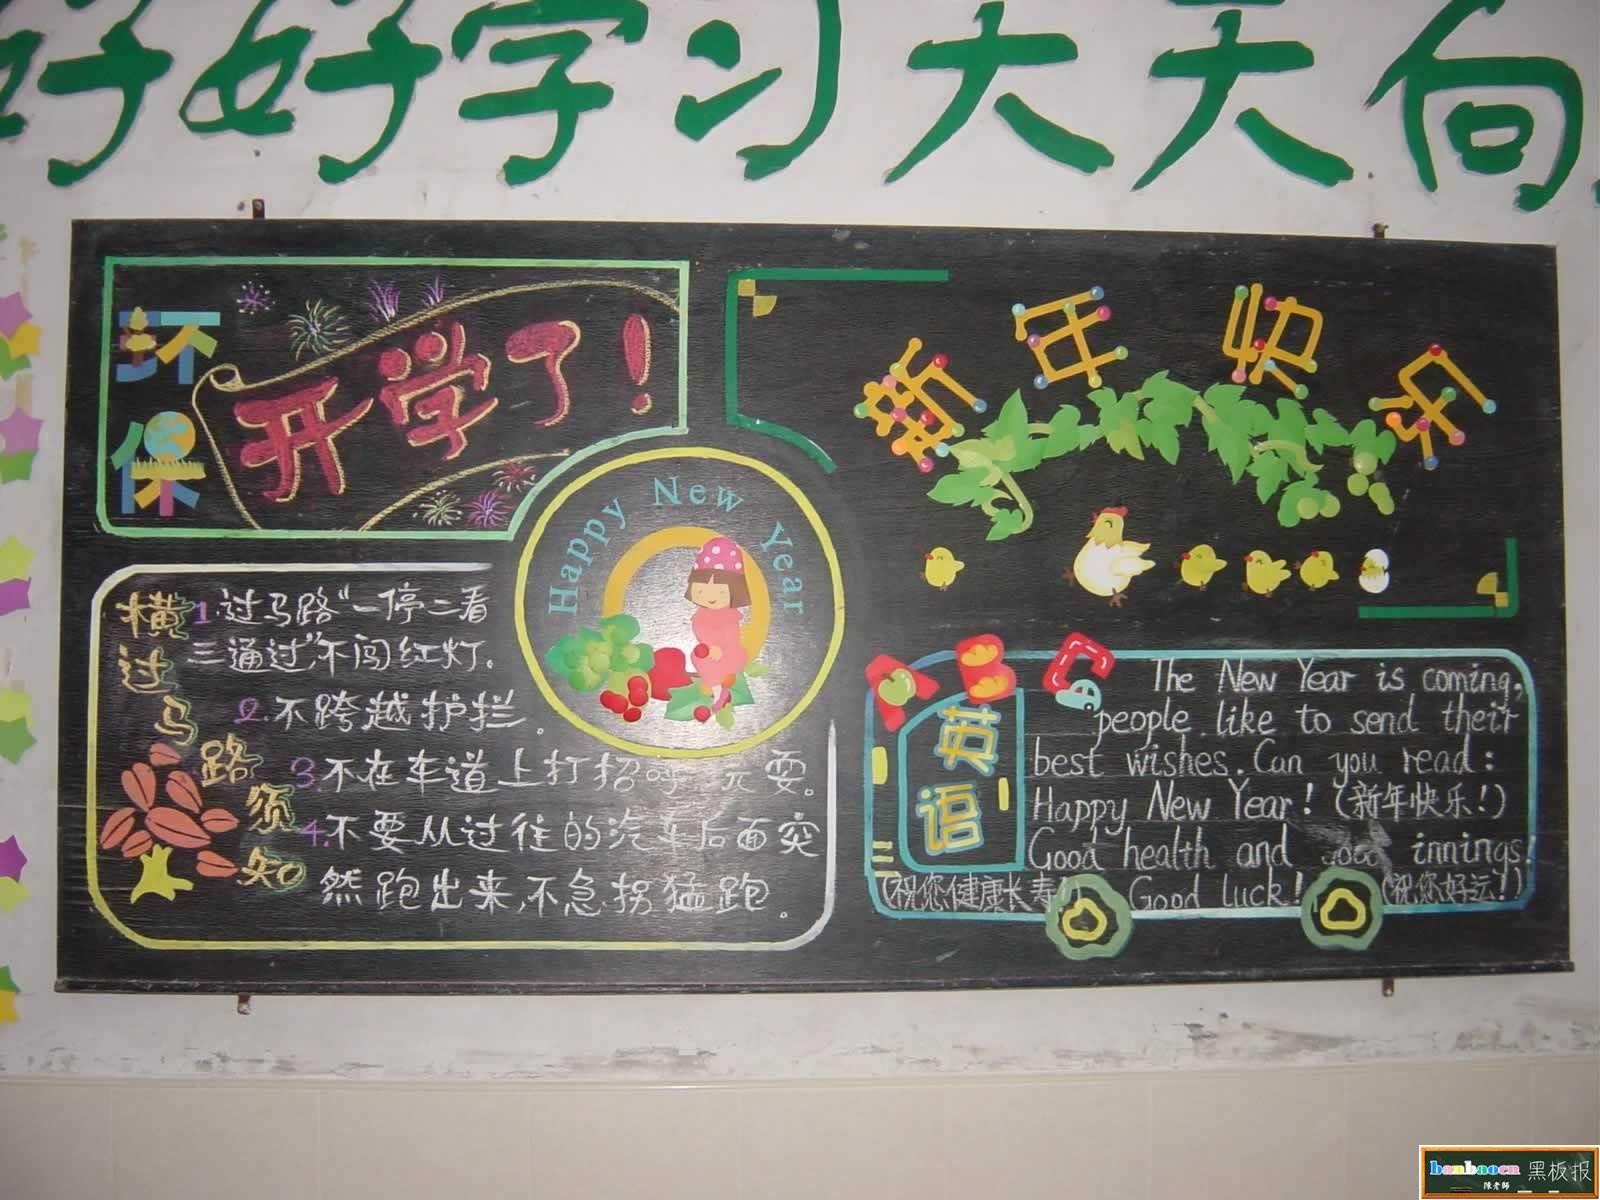 好好学习天天向
环保
开学了!
新年节约
Happy New Year
横过马路须知
1.过马路“一停二看
三通过”不闯红灯.
2.不跨越护拦.
3.不在车道上打招呼 元耍。
4.不要从过往的汽车后面突
然跑出来,不急拐猛跑.
ABC
英语
The New Year is coming,
people like to send their
best wishes. Can you read:
Happy New Year! (新年快乐!)
Good health and good innings!
(祝您健康长寿!) Good luck! (祝您好运!)
banbaocn 黑板报
陳老師